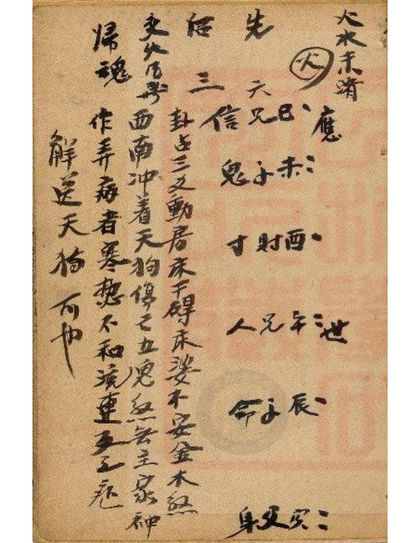 火水未濟
火
應
巳 兄 天
未 子 鬼
酉 財 寸
午 兄 人 世
辰 子 命
寅 父 身
先
信
三
卦占三爻動居床下碍床婆不安金木煞
西南冲着天狗停亡五傀煞無主家神
歸魂
作弄病者寒熱不和流連
解送天狗可也